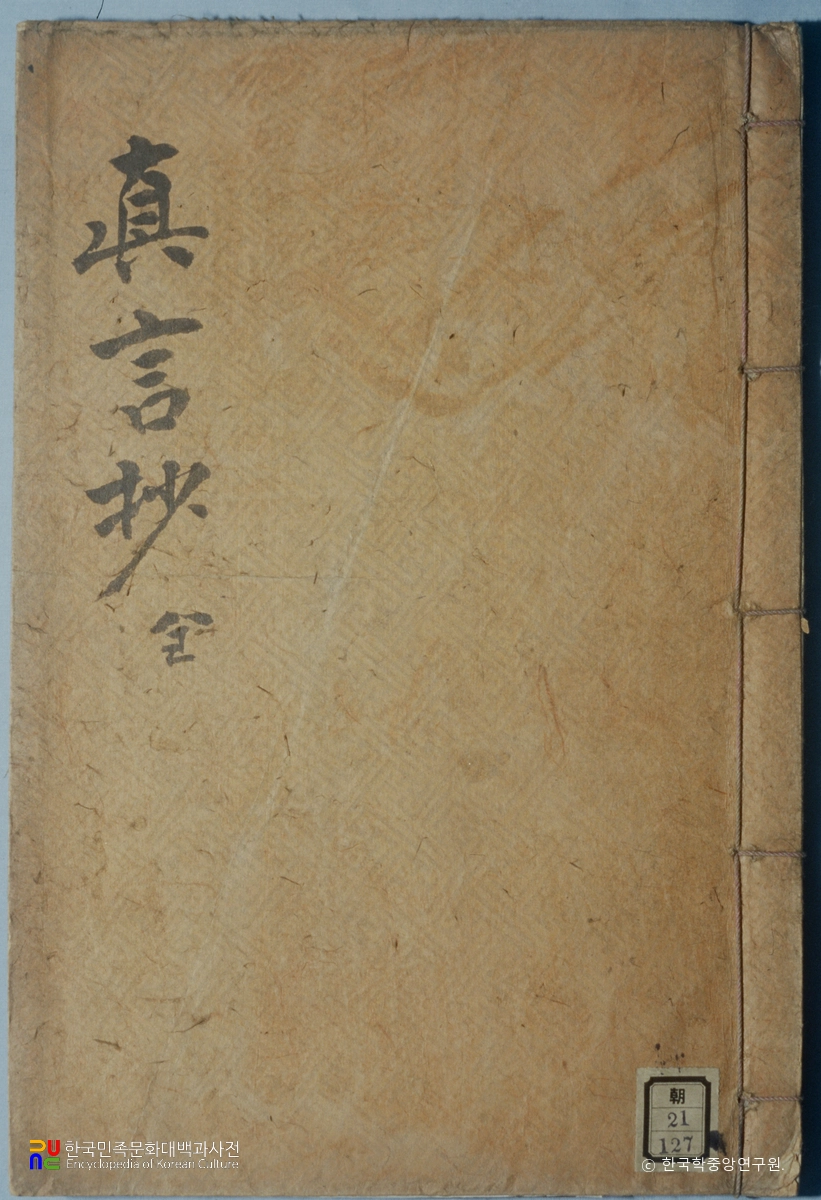 真言抄 全
朝
21
127
한국민족문화대백과사전
Encyclopedia of Korean Culture
© 한국학중앙연구원.